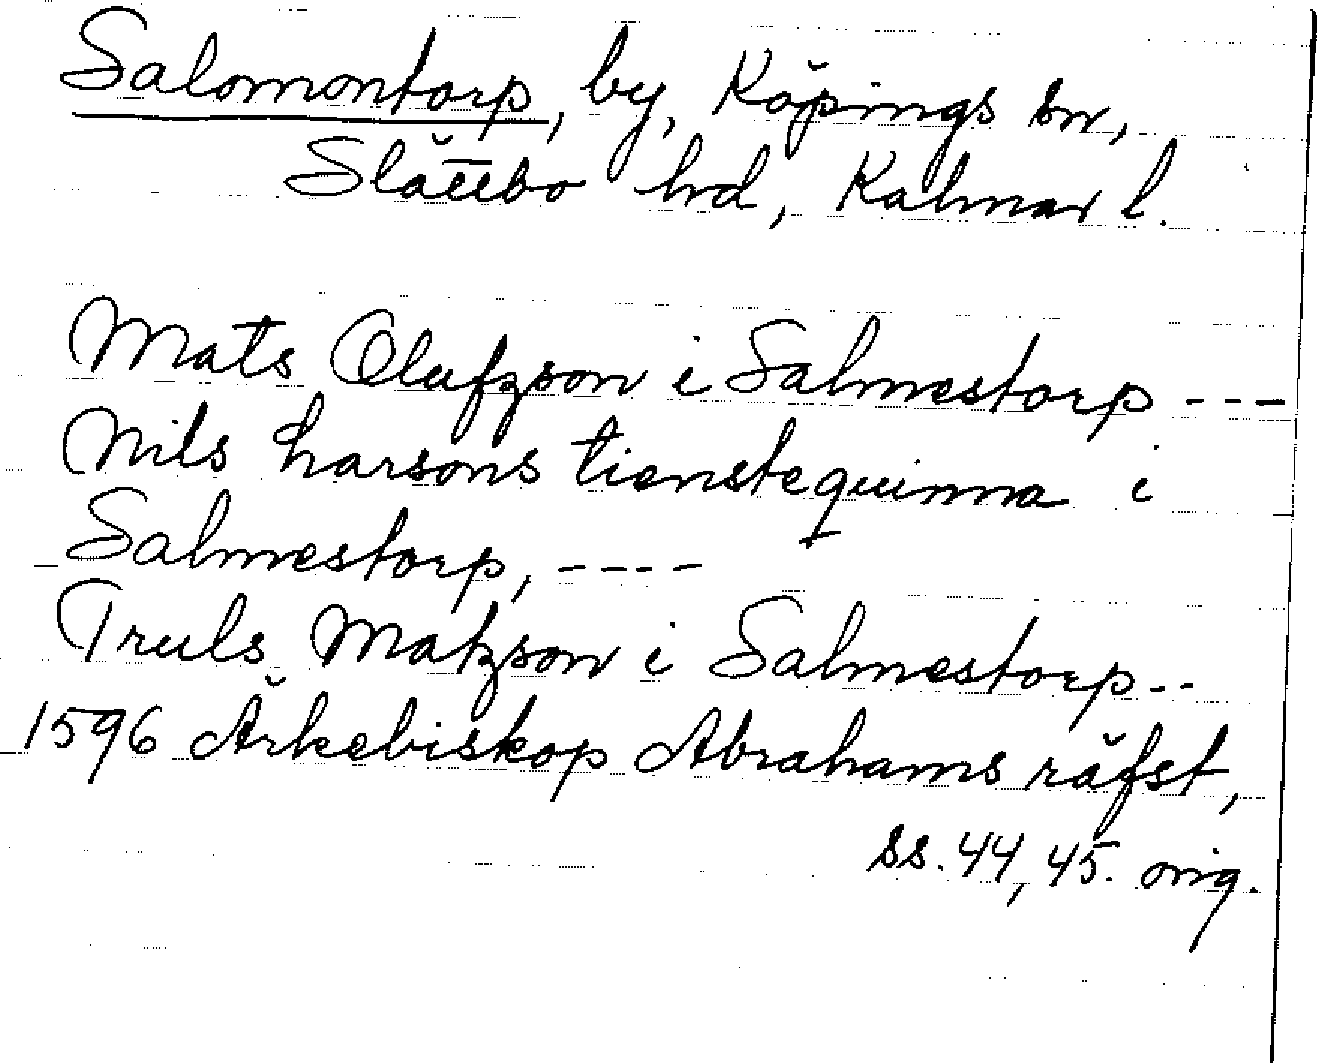 Salomontorp, by, Köpings sn,
Slättbo hrd, Kalmar l.
Mats Olufzson i Salmestorp ---
Nils harsons tienstequinna i
Salmestorp, ----
Truls Matzson i Salmestorp --
1596 Ärkebiskop Abrahams räfst,
ss. 44, 45. orig.